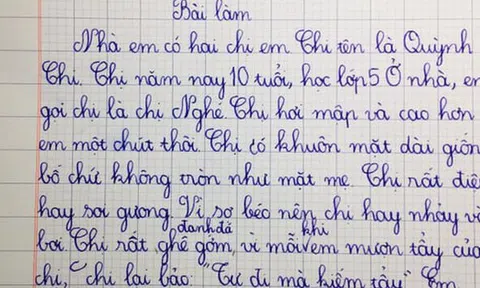 Bài làm
Nhà em có hai chị em Chị tên là Quỳnh
Chi. Chị năm nay 10 tuổi, học lớp 5 Ở nhà, em
gọi chị là chị Nghé. Chị hơi mập và cao hơn
em một chút thôi. Chị có khuôn mặt dài giốn
bố chứ không tròn như mặt mẹ. Chị rất điệ
hay soi gương. Vì sợ béo nên chị hay nhảy v
đanh đá khi
bơi. Chị rất ghê gớm, vì mỗi em mượn tẩy của
chị, chị lại bảo: "Tự đi mà kiếm tẩy" Em